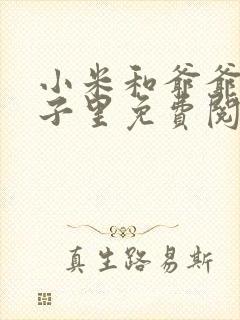 小米和爷爷
子里免費阅
真生路易斯